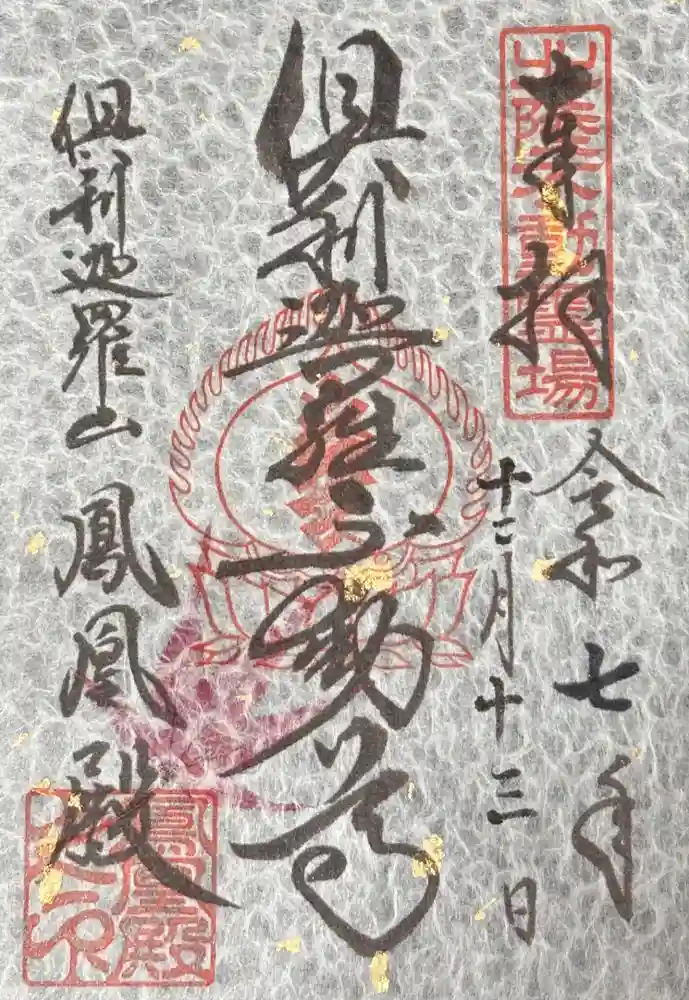 奉拝
北陸不動霊場
令和七年
十二月十三日
倶利迦羅不動尊
倶利迦羅山 鳳凰殿
鳳凰殿之印